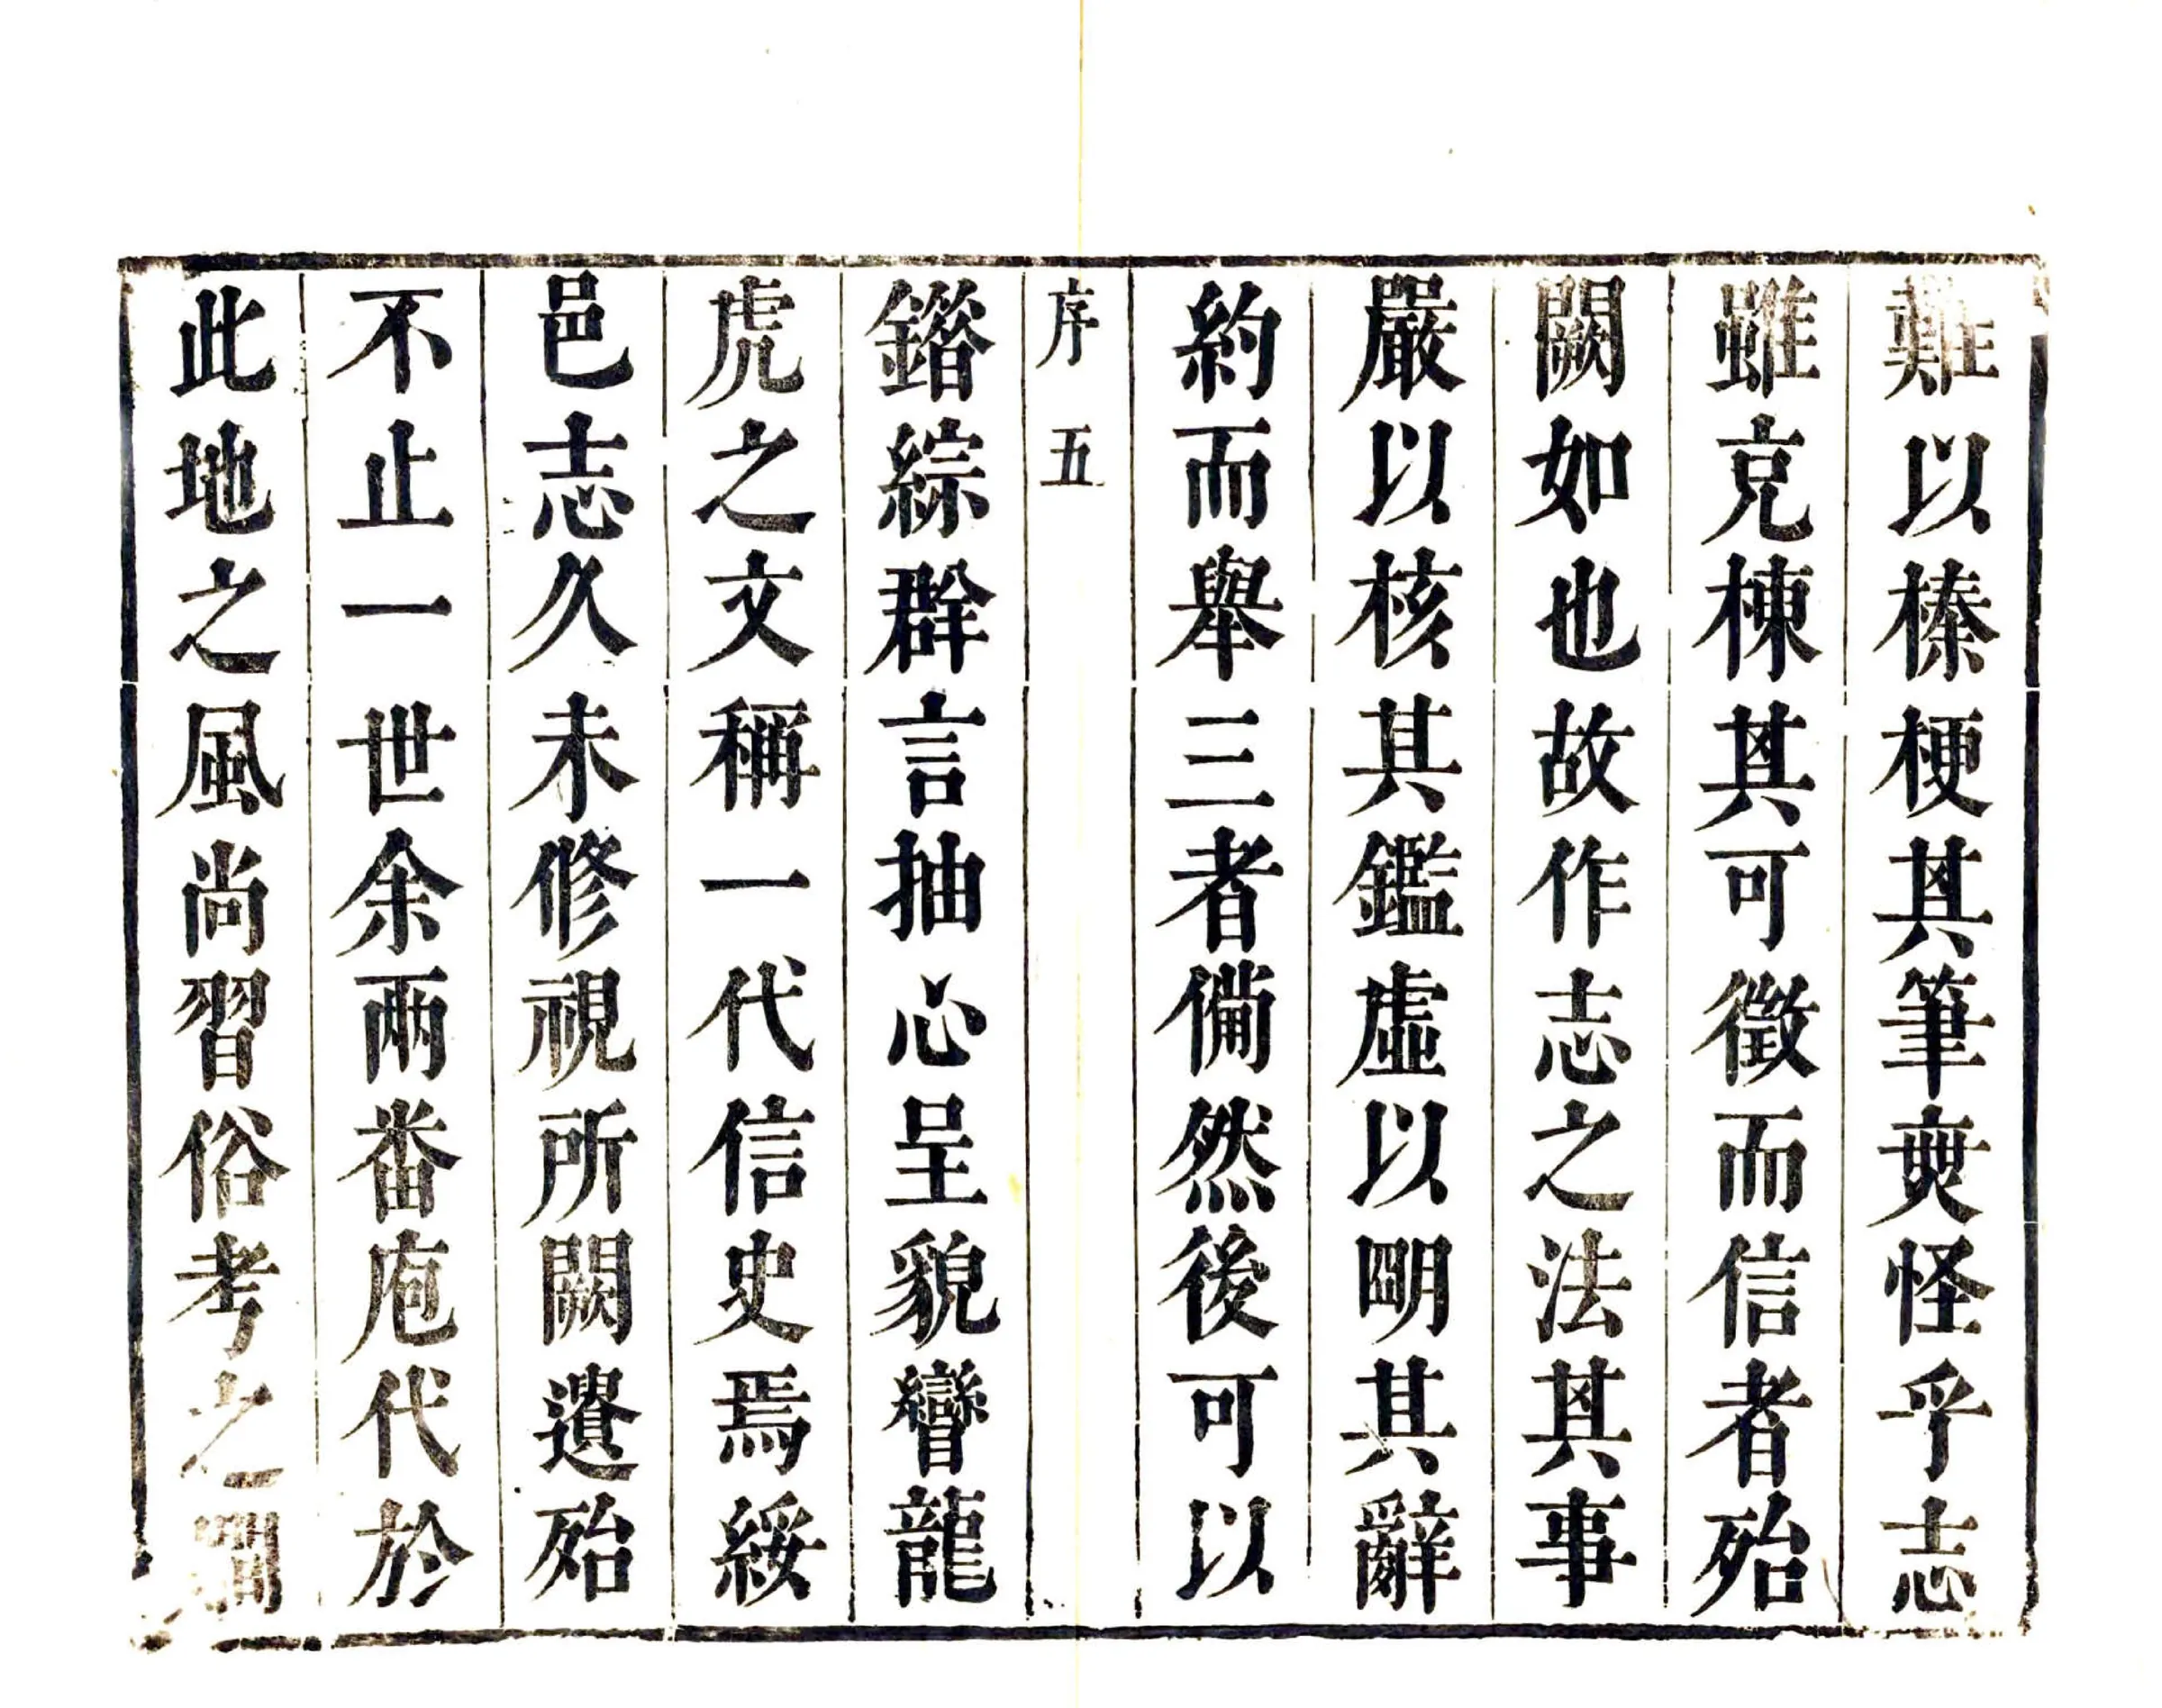 難以榛梗其筆奭怪乎志
雖克棟其可徵而信者殆
闕如也故作志之法其事
嚴以核其鑑虛以明其辭
約而舉三者備然後可以
序五
鐕綜群言抽心呈貌彎龍
虎之文稱一代信史焉綏
邑志久未修視所闕遺殆
不止一世余兩番庖代於
此地之風尚習俗考之